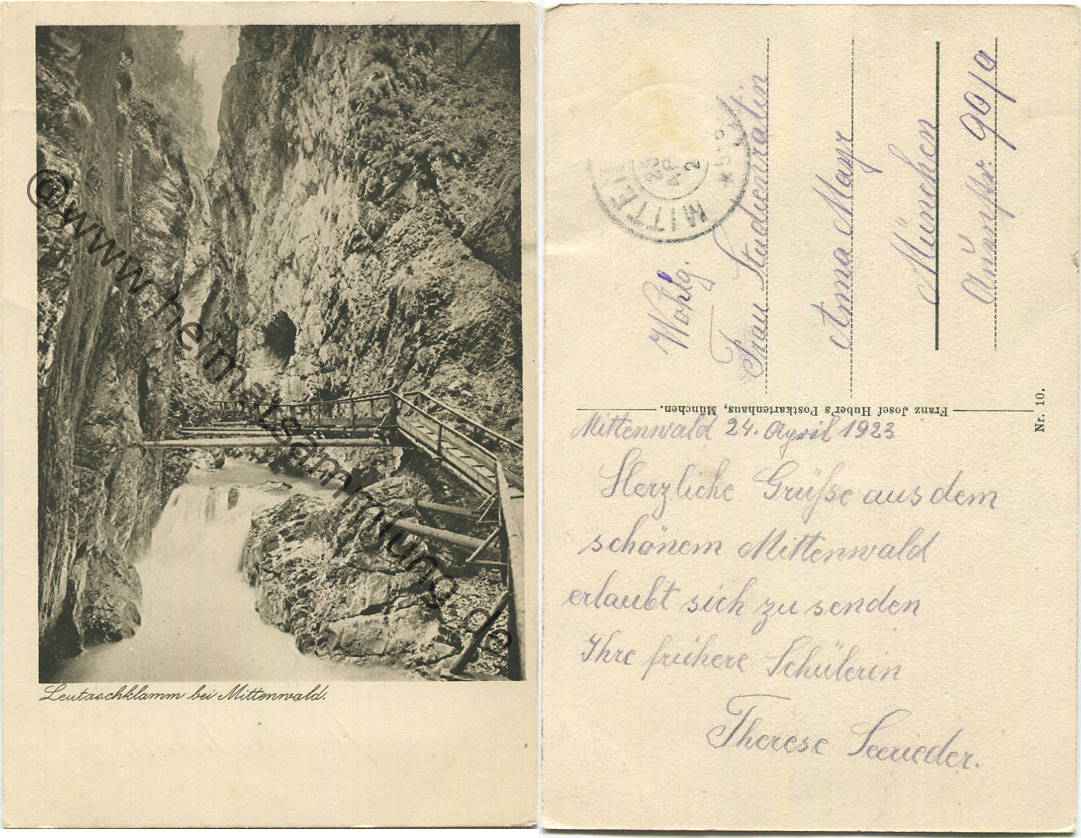 Leutaschklamm bei Mittenwald.
© www.heimatsammlung.de
MITTE
Wohlg.
Frau Studienratin
Anna Mayr
München
90/9
Franz Josef Huber's Postkartenhaus, München.
Nr. 10.
Mittenwald 24. April 1923
Herzliche Grüße aus dem
schönem Mittenwald
erlaubt sich zu senden
Ihre frühere Schülerin
Therese Seerieder.